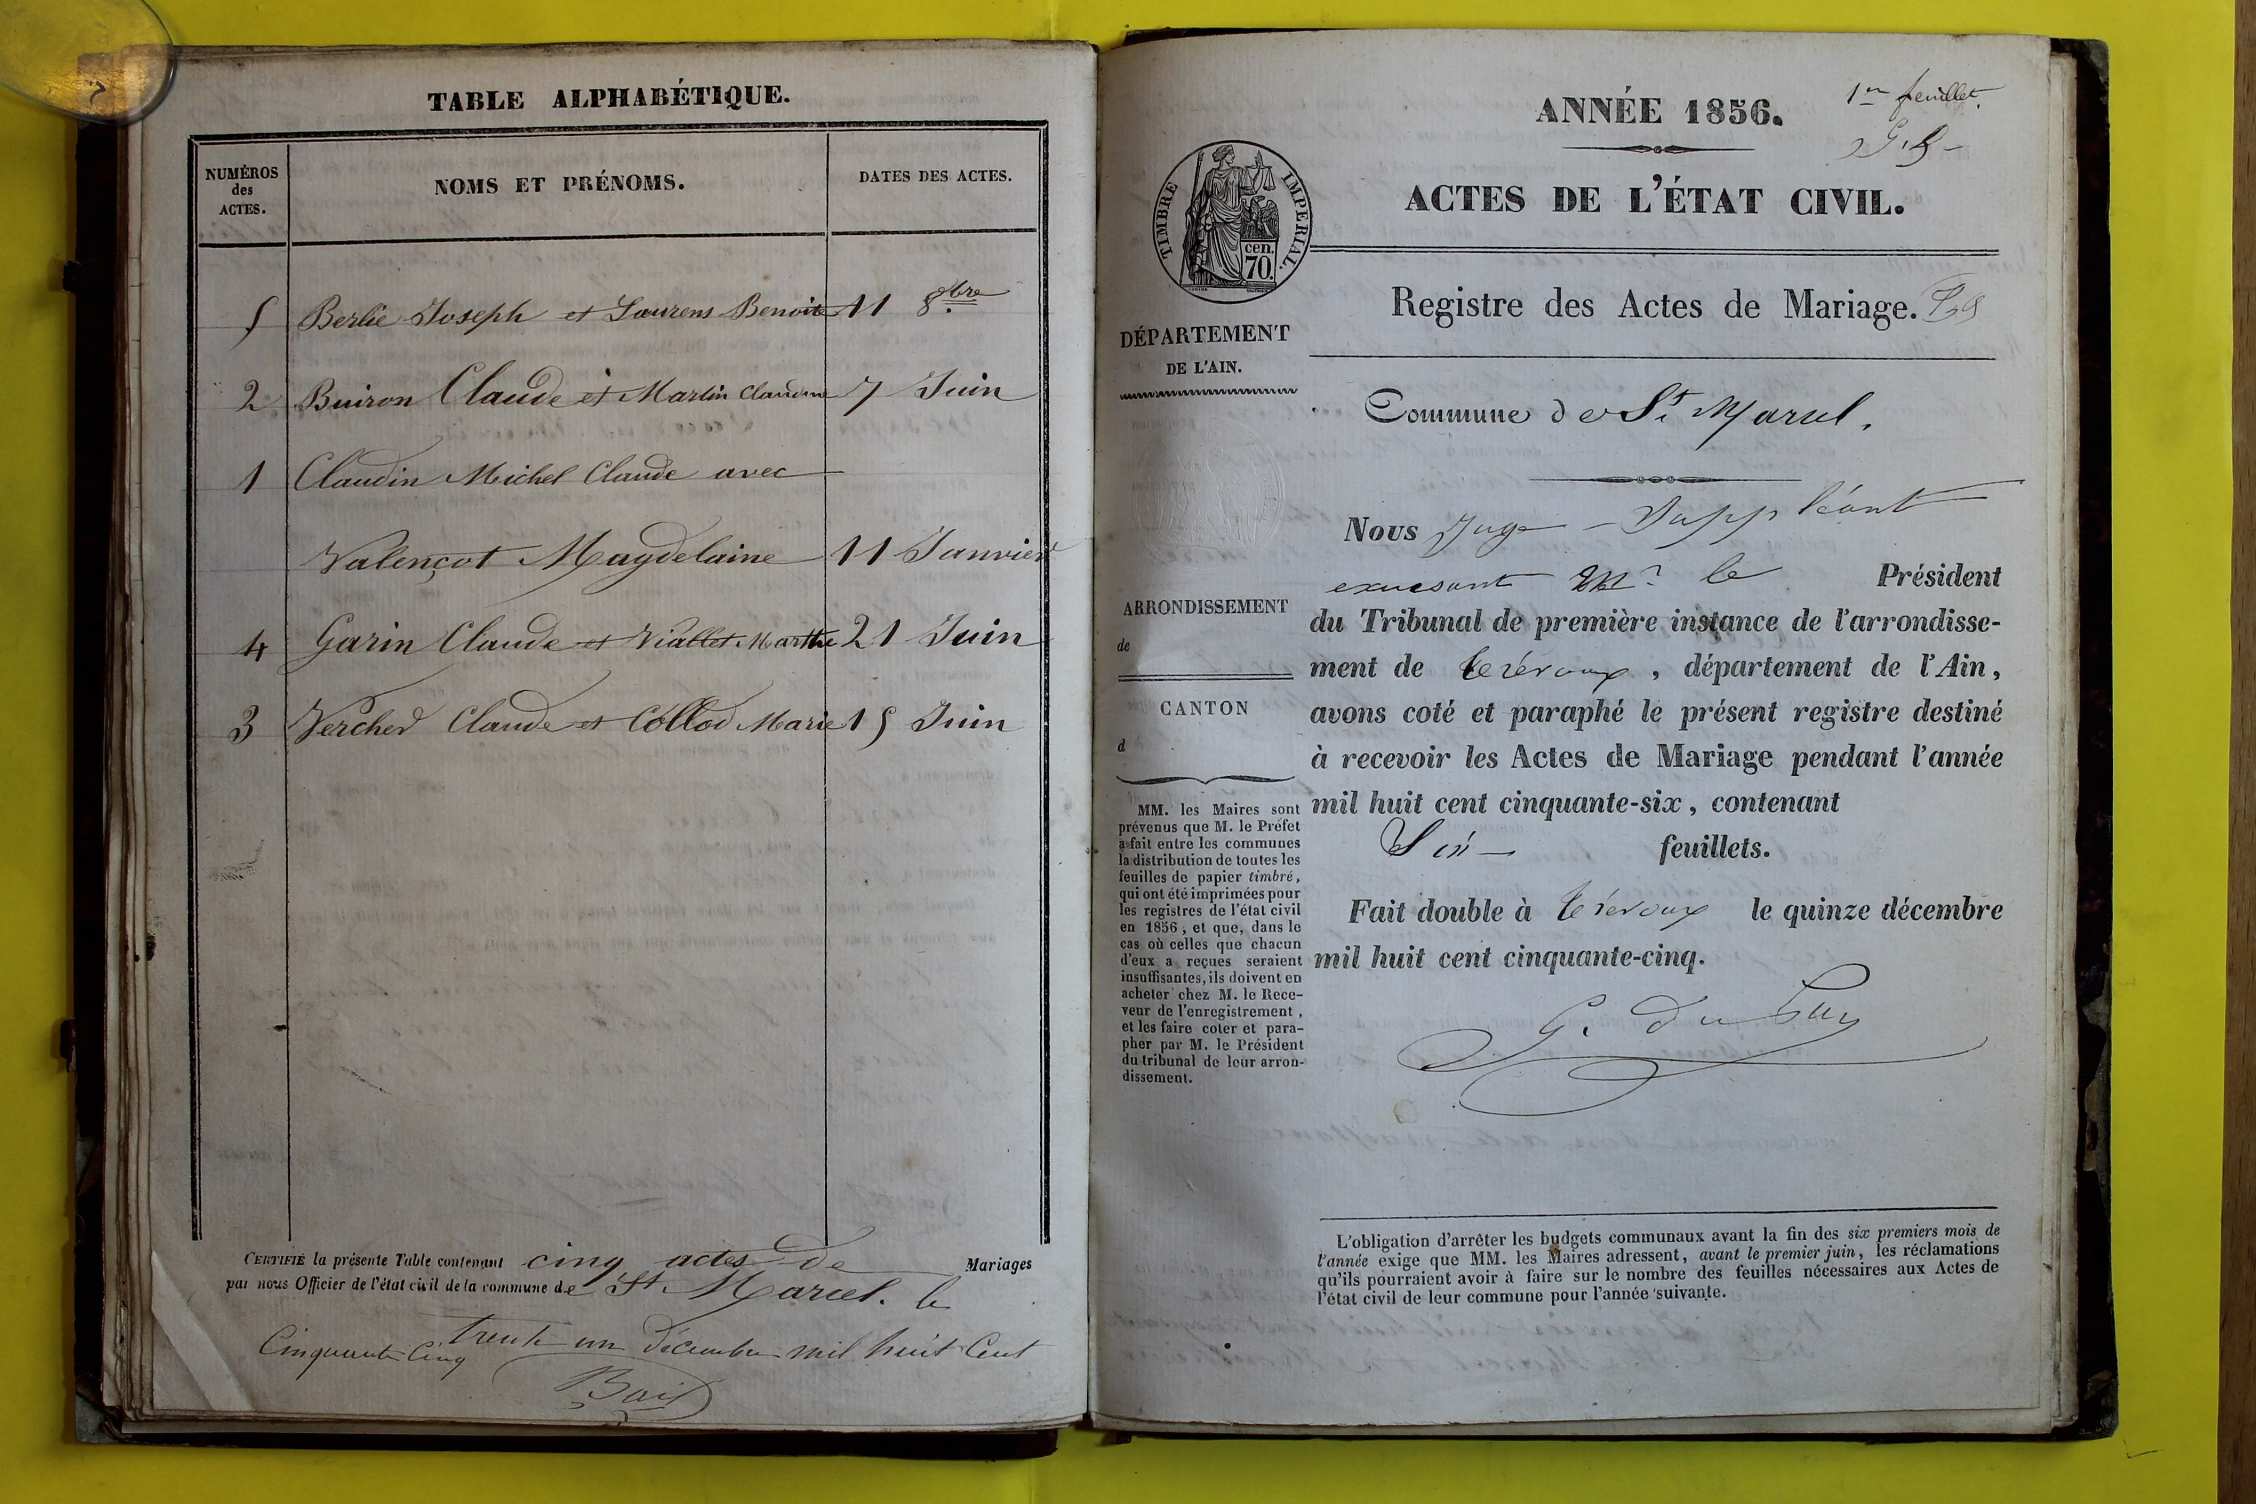 TABLE ALPHABÉTIQUE.
NUMÉROS des ACTES.
NOMS ET PRÉNOMS.
DATES DES ACTES.
5 Berlie Joseph et Laurens Benoite 11 8bre
2 Buiron Claude et Martin Claudine 7 Juin
1 Claudin Michel Claude avec
Valençot Magdelaine 11 Janvier
4 Garin Claude et Viallet Marthe 21 Juin
3 Vercher Claude et Collod Marie 15 Juin
CERTIFIÉ la présente Table contenant cinq actes de Mariages
par nous Officier de l'état civil de la commune de St Marcel. le
trente un décembre mil huit Cent
Cinquante Cinq
1er feuillet.
ANNÉE 1856.
ACTES DE L'ÉTAT CIVIL.
TIMBRE IMPERIAL.
cen.
70.
Registre des Actes de Mariage.
DÉPARTEMENT
DE L'AIN.
Commune de St Marcel.
Nous Juge-Suppléant
exerçant Mr le Président
du Tribunal de première instance de l'arrondisse-
ment de Trévoux, département de l'Ain,
avons coté et paraphé le présent registre destiné
à recevoir les Actes de Mariage pendant l'année
mil huit cent cinquante-six, contenant
Six feuillets.
Fait double à Trévoux le quinze décembre
mil huit cent cinquante-cinq.
G. Du Puy
ARRONDISSEMENT
de
CANTON
d
MM. les Maires sont
prévenus que M. le Préfet
a fait entre les communes
la distribution de toutes les
feuilles de papier timbré,
qui ont été imprimées pour
les registres de l'état civil
en 1856, et que, dans le
cas où celles que chacun
d'eux a reçues seraient
insuffisantes, ils doivent en
acheter chez M. le Rece-
veur de l'enregistrement,
et les faire coter et para-
pher par M. le Président
du tribunal de leur arron-
dissement.
L'obligation d'arrêter les budgets communaux avant la fin des six premiers mois de
l'année exige que MM. les Maires adressent, avant le premier juin, les réclamations
qu'ils pourraient avoir à faire sur le nombre des feuilles nécessaires aux Actes de
l'état civil de leur commune pour l'année suivante.